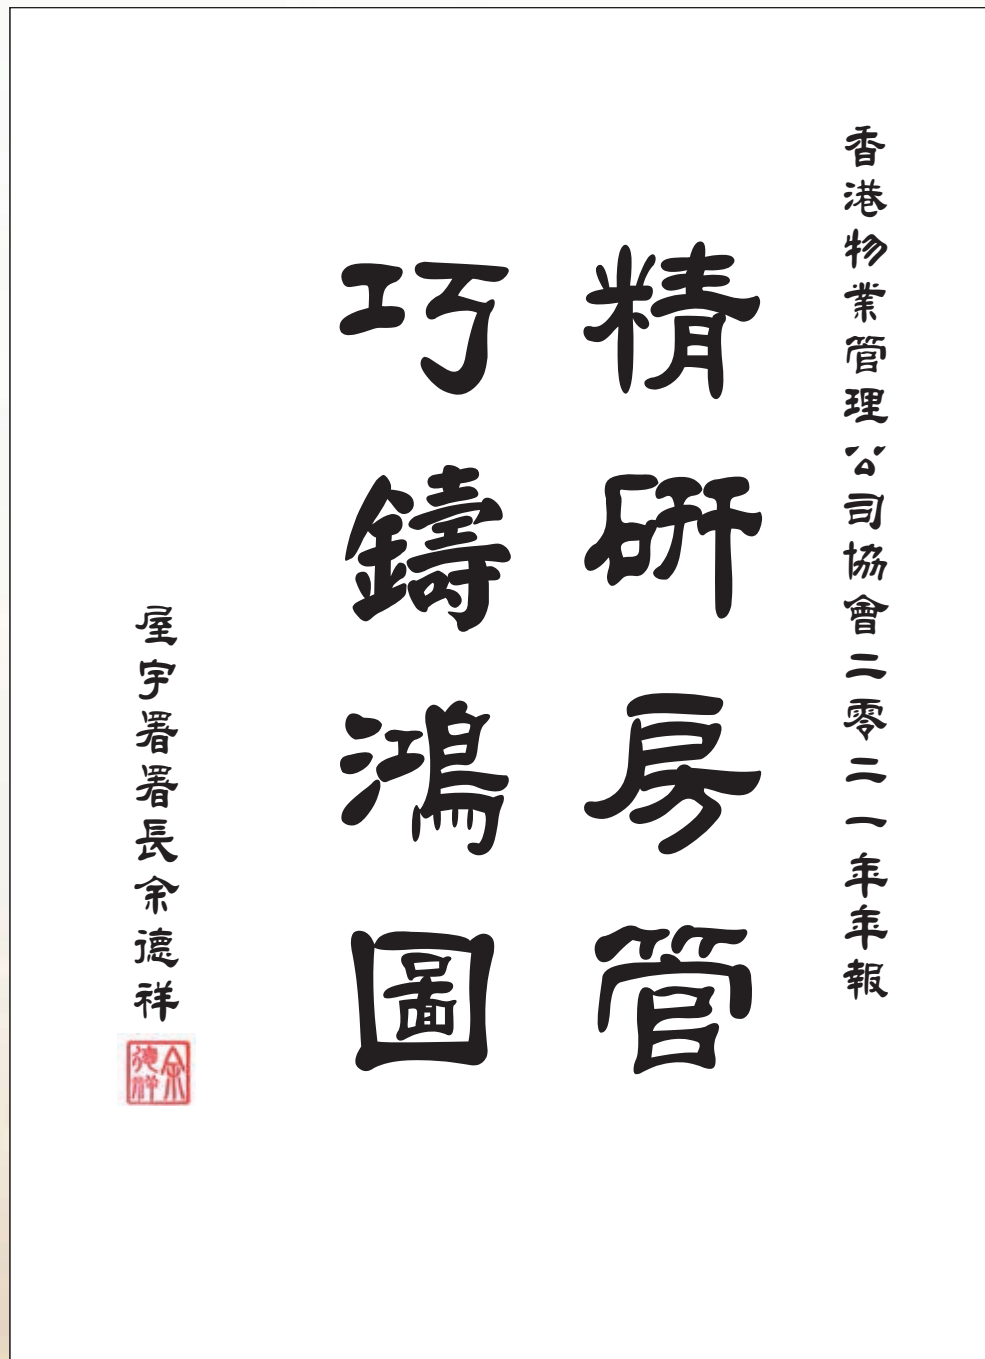 香港物業管理公司協會二零二一年年報
精研房管
巧鑄鴻圖
屋宇署署長余德祥
余德祥